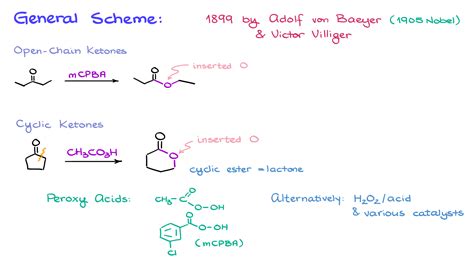 General Scheme:
1899 by Adolf von Baeyer (1905 Nobel)
& Victor Villiger
Open-Chain Ketones
O
mCPBA
O
O
inserted O
Cyclic Ketones
O
CH₃CO₃H
O
O
inserted O
cyclic ester = lactone
Peroxy Acids:
CH₃-C
O
O-OH
O
O-OH
Cl
(mCPBA)
Alternatively: H₂O₂/acid
& various catalysts